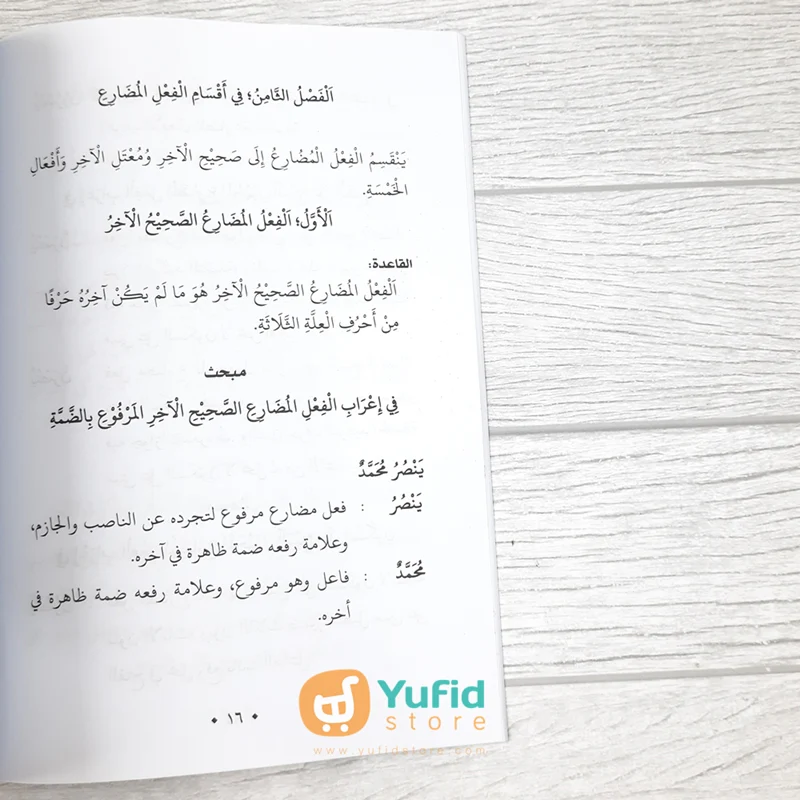 اَلْفَصْلُ الثَّامِنُ؛ فِي أَقْسَامِ الْفِعْلِ الْمُضَارِعِ
يَنْقَسِمُ الْفِعْلُ الْمُضَارِعُ إِلَى صَحِيْحِ الْآخِرِ وَمُعْتَلِ الْآخِرِ وَأَفْعَالِ
الْخَمْسَةِ.
اَلْأَوَّلُ؛ اَلْفِعْلُ الْمُضَارِعُ الصَّحِيْحُ الْآخِرُ
القاعدة:
اَلْفِعْلُ الْمُضَارِعُ الصَّحِيْحُ الْآخِرُ هُوَ مَا لَمْ يَكُنْ آخِرُهُ حَرْفًا
مِنْ أَحْرُفِ الْعِلَّةِ الثَّلَاثَةِ.
مبحث
فِي إِعْرَابِ الْفِعْلِ الْمُضَارِعِ الصَّحِيْحِ الْآخِرِ الْمَرْفُوْعِ بِالضَّمَّةِ
يَنْصُرُ مُحَمَّدٌ
يَنْصُرُ : فعل مضارع مرفوع لتجرده عن الناصب والجازم،
وعلامة رفعه ضمة ظاهرة في آخره.
مُحَمَّدٌ : فاعل وهو مرفوع، وعلامة رفعه ضمة ظاهرة في
أخره.
• ١٦ •
Yufid
store
www.yufidstore.com